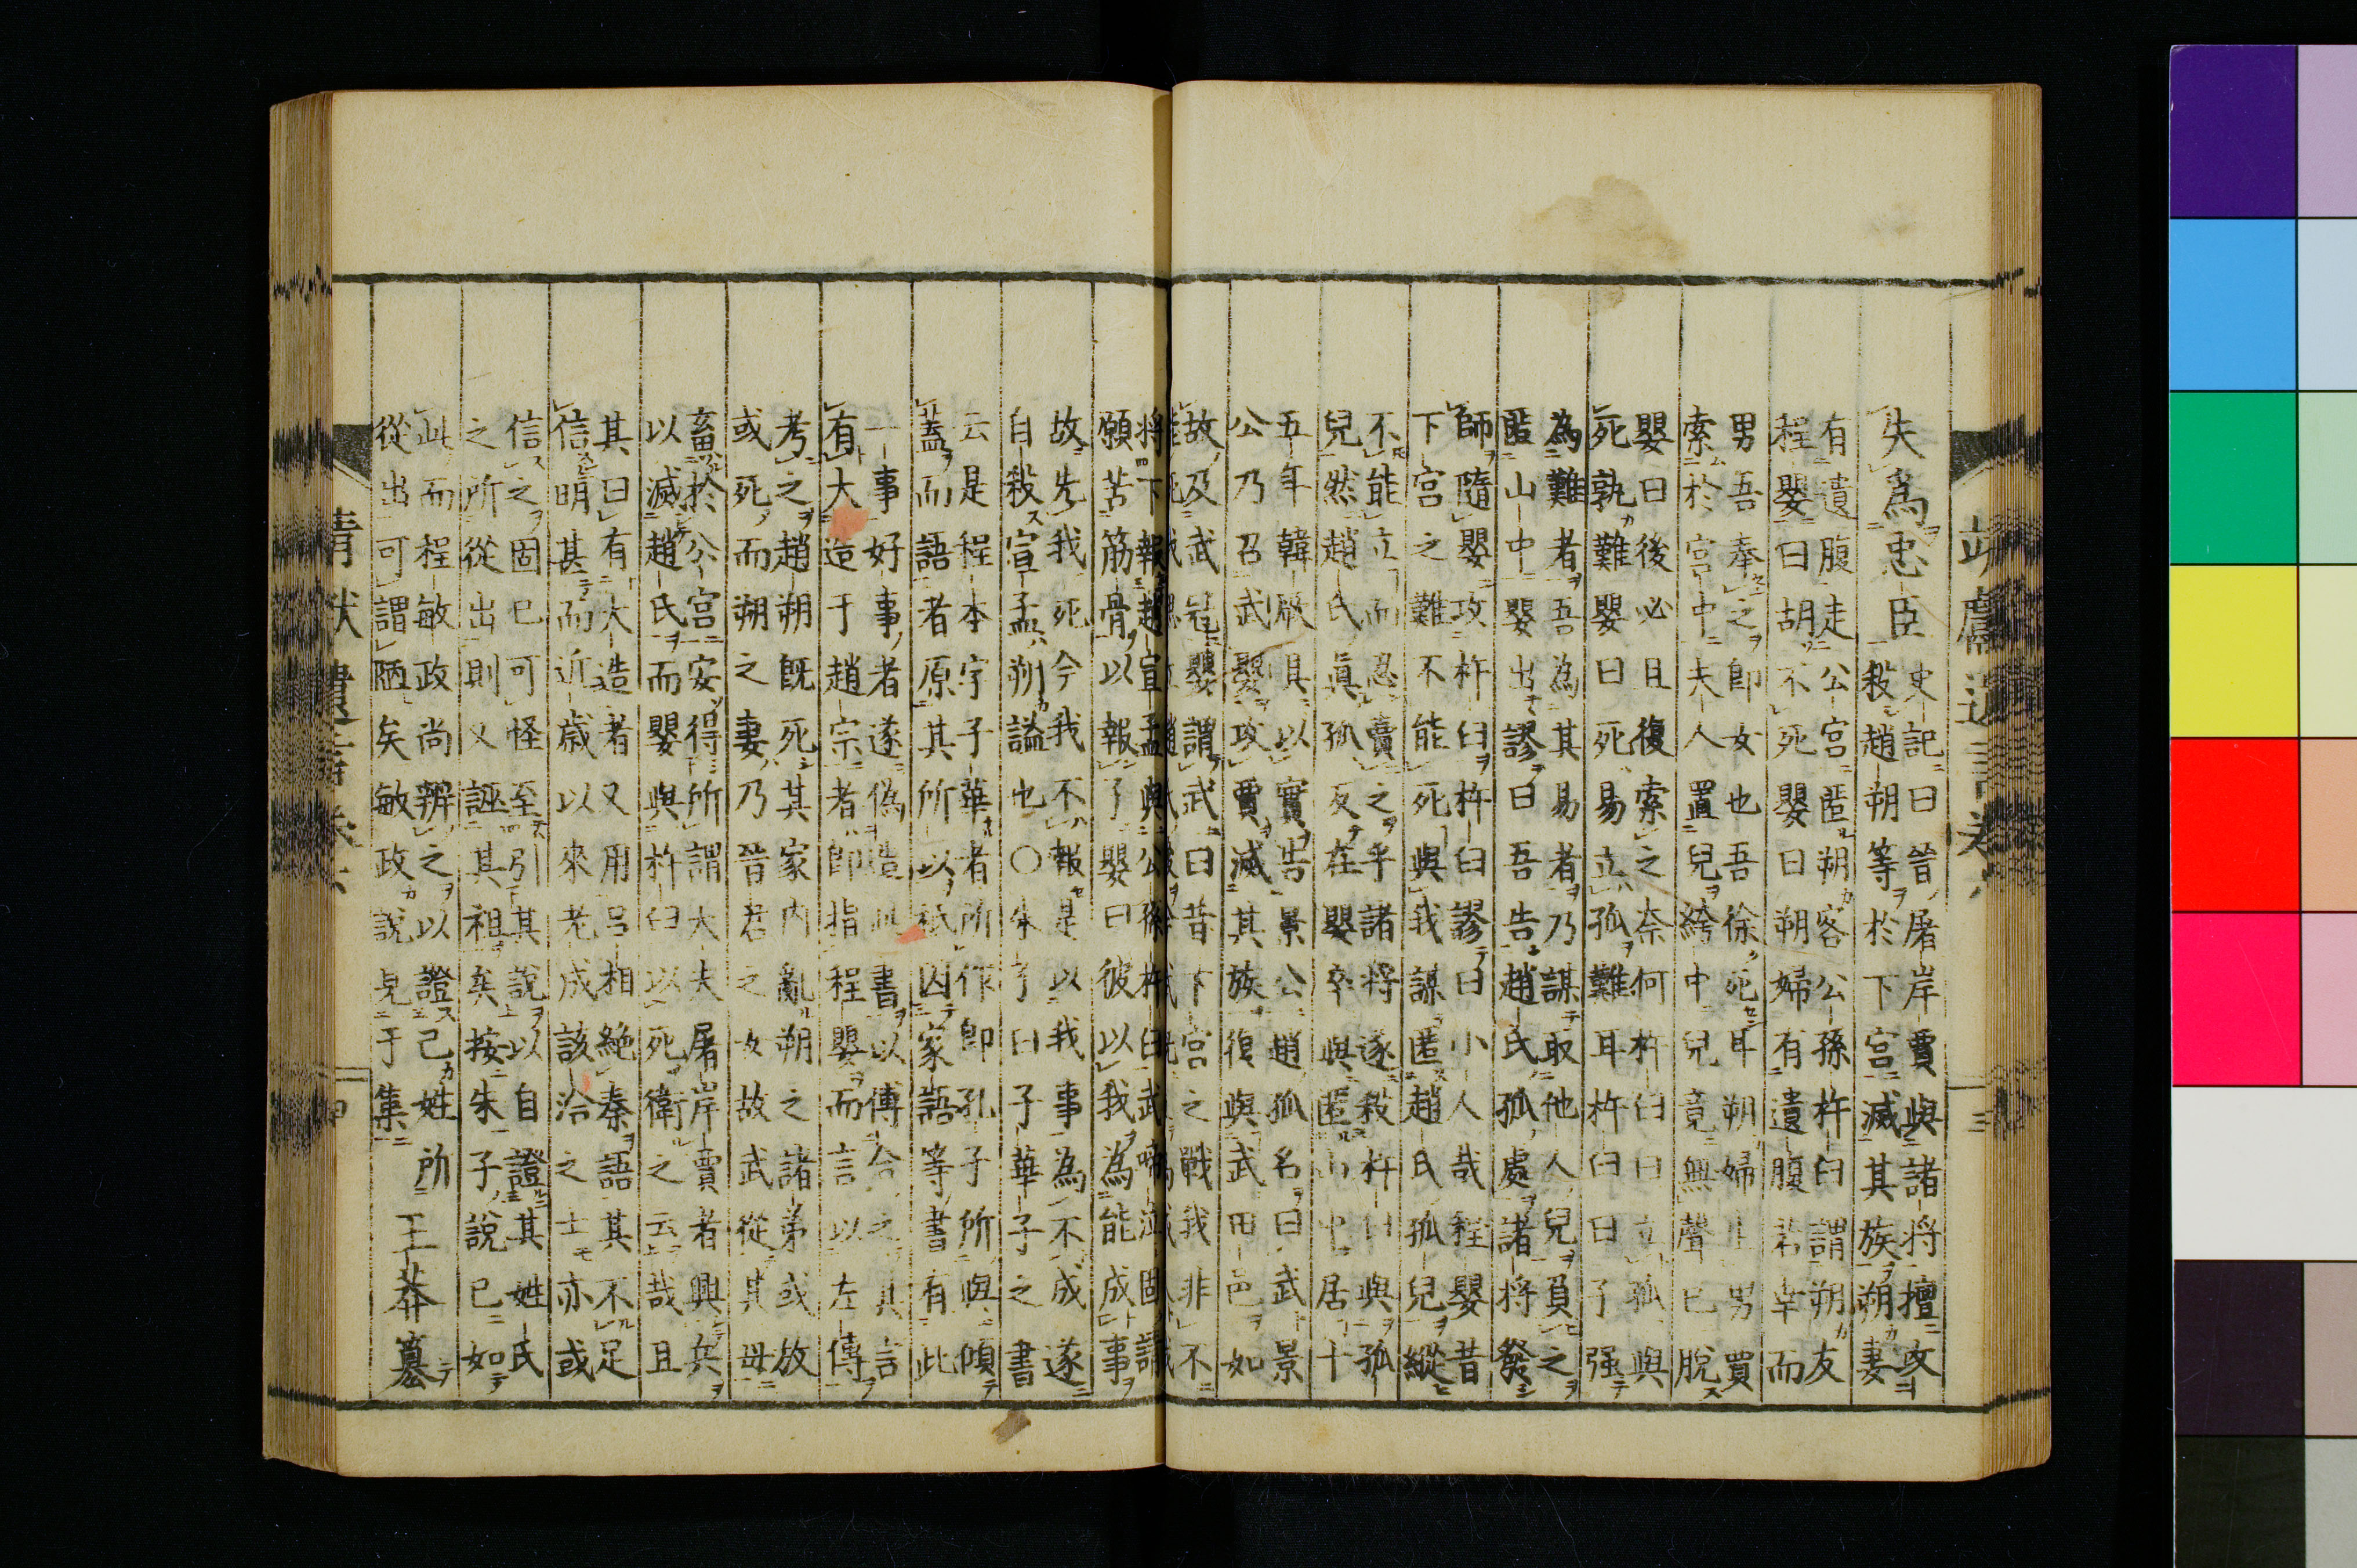 失爲忠臣
史記曰晉屠岸賈與諸将擅攻
殺趙朔等於下宮滅其族朔妻
有遺腹走公宮匿朔客公孫杵臼謂朔友
程嬰曰胡不死嬰曰朔婦有遺腹若幸而
男吾奉之卽女也吾徐死耳朔婦生男賈
索於宮中夫人置兒絝中兒竟無聲已脫
嬰曰後必且復索之奈何杵臼曰立孤與
死孰難嬰曰死易立孤難耳杵臼曰子强
為難者吾為其易者乃謀取他人兒負之
匿山中嬰出謬曰吾告趙氏孤處諸将發
師隨嬰攻杵臼杵臼謬曰小人哉程嬰昔
下宮之難不能死與我謀匿趙氏孤兒縱
不能立而忍賣之乎諸将遂殺杵臼與孤
兒然趙氏眞孤反在嬰卒與匿山中居十
五年韓厥具以實告景公趙孤名曰武景
公乃召武嬰攻賈滅其族復與武田邑如
故及武冠嬰謂武曰昔下宮之戰我非不
将下報趙宣孟與公孫杵臼武啼泣固請
願苦筋骨以報子嬰曰彼以我為能成事
故先我死今我不報是以我事為不成遂
自殺宣孟朔謚也○朱子曰子華子之書
云是程本字子華者所作卽孔子所與傾
蓋而語者原其所以祇因家語等書有此
一事好事者遂偽造此書以傳合之其言
有大造于趙宗者卽指程嬰而言以左傳
考之趙朔既死其家内亂朔之諸弟或放
或死而朔之妻乃晉君之女故武從其母
畜於公宮安得所謂大夫屠岸賈者興兵
以滅趙氏而嬰與杵臼以死衛之云哉且
其曰有大造者又用呂相絶秦語其不足
信明甚而近歳以來老成該洽之士亦或
信之固已可怪至引其說以自證其姓氏
之所從出則又誣其祖矣按朱子說已如
此而程敏政尚辨之以證己姓所
從出可謂陋矣敏政說見于集
王莽簒